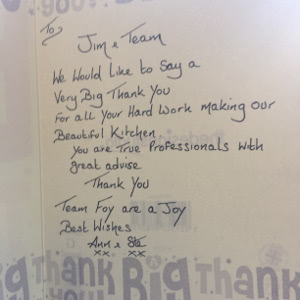 you!
To
Jim & Team
We Would like to Say a
Very Big Thank You
For all Your Hard Work making Our
Beautiful Kitchen
You are True Professionals with
great advise
Thank You
Team Foy are a Joy
Best Wishes
Ann &
xx xx
Big Thank Big Thank
You!